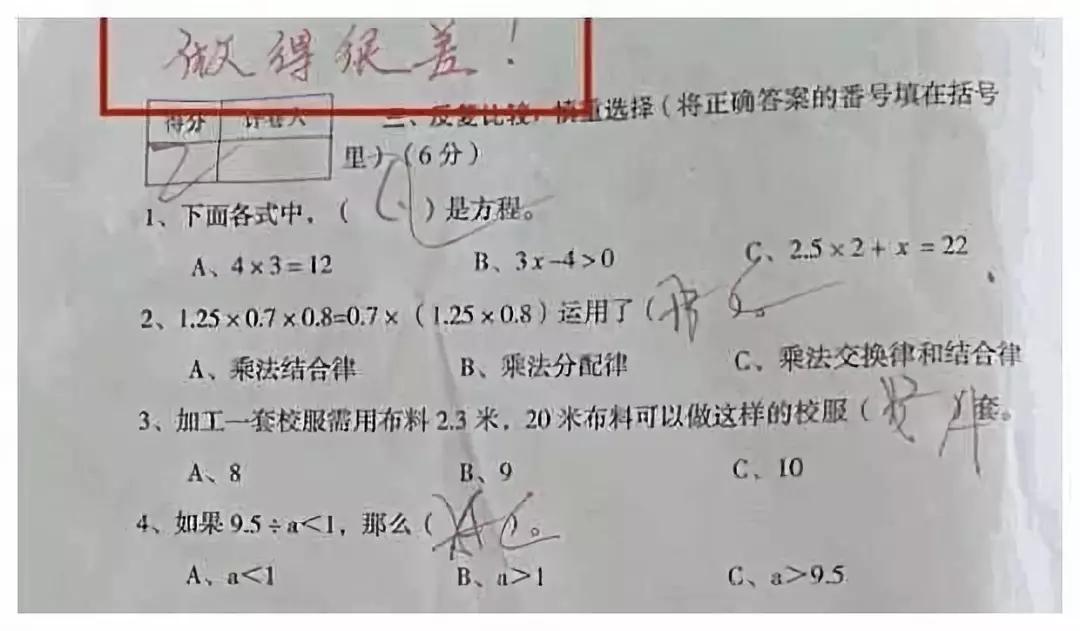 做得很差！
得分 评卷人 三、反复比较，慎重选择（将正确答案的番号填在括号
2 里）（6分）
1、下面各式中，（ C ）是方程。
A、4×3=12 B、3x-4>0 C、2.5×2+x=22
2、1.25×0.7×0.8=0.7×（1.25×0.8）运用了（ C ）。
A、乘法结合律 B、乘法分配律 C、乘法交换律和结合律
3、加工一套校服需用布料2.3米，20米布料可以做这样的校服（ A ）套。
A、8 B、9 C、10
4、如果9.5÷a<1，那么（ C ）。
A、a<1 B、a>1 C、a>9.5